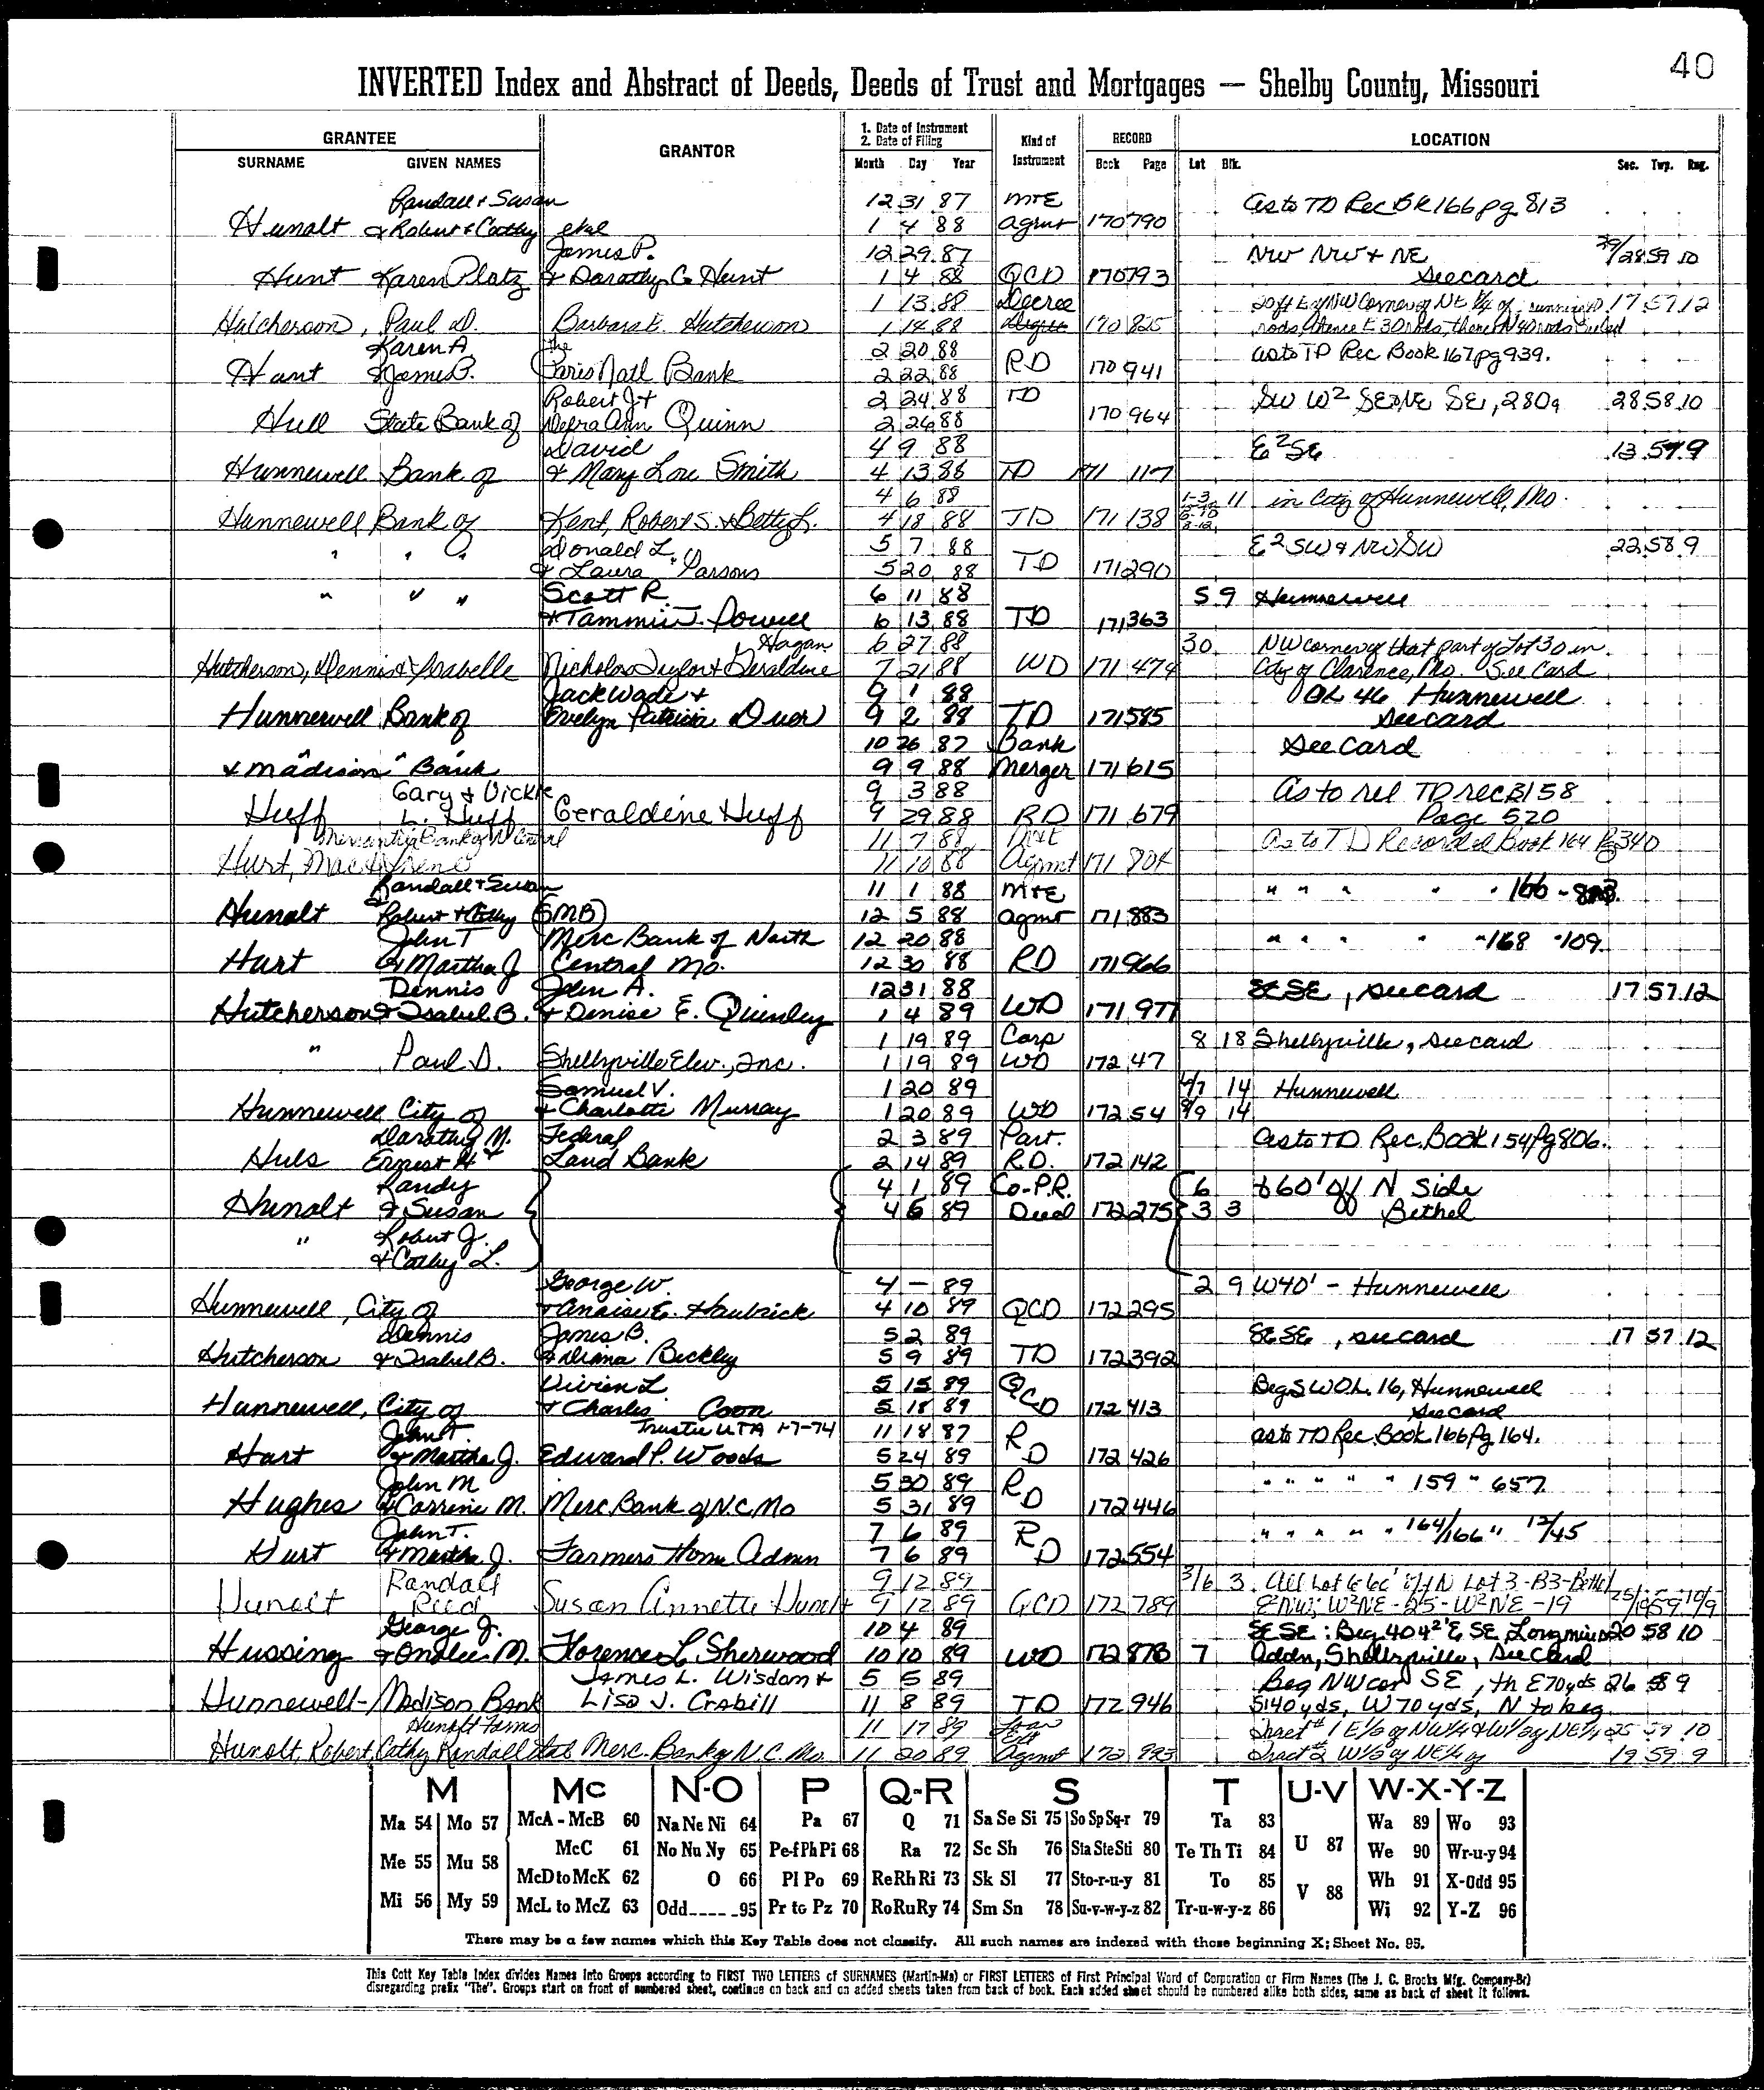 40
INVERTED Index and Abstract of Deeds, Deeds of Trust and Mortgages — Shelby County, Missouri
GRANTEE GRANTOR 1. Date of Instrument 2. Date of Filing Kind of Instrument RECORD LOCATION
SURNAME GIVEN NAMES Month Day Year Book Page Lot Blk. Sec. Twp. Rng.
Randall + Susan 12 31 87 mtE as to TD Rec BK 166 pg 813
Hunolt & Robert & Cathy etal 1 4 88 agmt 170 790
James P. 12 29 87 NW NW + NE 29/28 59 10
Hunt Karen Platz & Dorothy C Hunt 1 4 88 QCD 170 793 see card
1 13 88 Decree 17 57 12
Hutcherson, Paul D. Barbara E. Hutcherson 1 14 88 170 825 rods, thence E 30 rods, thence N 40 rods
Karen A the 2 20 88 as to TD Rec Book 167 pg 939.
Hunt & James P. Paris Natl Bank 2 22 88 RD 170 941
Robert J + 2 24 88 TD SW W2 SE NE SE, 280a 28 58 10
Hull State Bank of Debra Ann Quinn 2 26 88 170 964
David 4 9 88 E2SE 13 57 9
Hunnewell Bank of & Mary Lou Smith 4 13 88 TD 171 117
4 6 88 1-3 11 in City of Hunnewell, Mo.
Hunnewell Bank of Kent, Robert S. & Betty L. 4 18 88 TD 171 138
Donald L. 5 7 88 E2 SW & NW SW 22 58 9
" " " & Laura Parsons 5 20 88 TD 171 290
" " " Scott R. 6 11 88 5 9 Hunnewell
& Tammie J. Powell 6 13 88 TD 171 363
Hagan 6 27 88 30 NW corner of that part of Lot 30 in
Hutcherson, Dennis & Isabelle Nicholas Taylor & Geraldine 7 21 88 WD 171 474 City of Clarence, Mo. See Card
Jack Wade + 9 1 88 OL 46 Hunnewell
Hunnewell Bank of Evelyn Patricia Duer 9 2 88 TD 171 585 see card
" " 10 26 87 Bank See Card
& Madison Bank 9 9 88 Merger 171 615
Gary & Vickie 9 3 88 As to rel TD rec B158
Huff L. Huff Geraldine Huff 9 29 88 RD 171 679 Page 520
Mercantile Bank of N Central 11 7 88 As to TD Recorded Book 164 Pg 340
Hurt, Mac & Irene 11 10 88 Agmt 171 804
Randall + Susan 11 1 88 mtE " " " " " 166 - 813
Hunolt Robert & Cathy (SMB) 12 5 88 agmt 171 883
John T Merc Bank of North 12 20 88 " " " " " 168 " 109.
Hurt & Martha J Central Mo. 12 30 88 RD 171 966
Dennis John A. 12 31 88 SESE, see card 17 57 12
Hutcherson & Isabel B. & Denise E. Quinley 1 4 89 WD 171 977
1 19 89 Corp 8 18 Shelbyville, see card
" Paul D. Shelbyville Elev., Inc. 1 19 89 WD 172 47
Samuel V. 1 20 89 6/7 14 Hunnewell
Hunnewell City of & Charlotte Murray 1 20 89 WD 172 54 8/9 14
Dorothy M. Federal 2 3 89 Part. as to TD Rec. Book 154 Pg 806.
Huls Ernest H & Land Bank 2 14 89 R.D. 172 142
Randy 4 1 89 Co-P.R. 6 & 60' off N Side
Hunolt & Susan 4 6 89 Deed 172 275 3 3 Bethel
" Robert J.
& Cathy L.
George W. 4 — 89 2 9 W40' - Hunnewell
Hunnewell, City of 4 10 89 QCD 172 295
Dennis James B. 5 2 89 SESE, see card 17 57 12
Hutcherson & Isabel B. & Diana Beckley 5 9 89 TD 172 392
Vivien L. 5 15 89 Q Beg SW OL. 16, Hunnewell
Hunnewell, City of & Charles Coon 5 18 89 CD 172 413 see card
John T. Trustee UTA 1-7-74 11 18 87 R as to TD Rec. Book 166 Pg. 164.
Hurt & Martha J. Edward P. Woods 5 24 89 D 172 426
John M 5 30 89 R " " " " " 159 " 657
Hughes & Corrine M. Merc. Bank of N.C. Mo 5 31 89 D 172 446
John T. 7 6 89 R " " " " " 164/166 " 12/45
Hurt & Martha J. Farmers Home Admn 7 6 89 D 172 554
Randall 9 12 89 3/6 3 All Lot 6 60' off N Lot 3-B3-Bethel
Hunolt Reed Susan Annette Hunolt 9 12 89 QCD 172 789 E2NW; W2NE-25-W2NE-19 25/19 59 10/9
George J. 10 4 89 SESE: Beg 404 2' E SE, Longmires 20 58 10
Hussing & Onalee M. Florence L Sherwood 10 10 89 WD 172 873 7 Addn, Shelbyville, See Card
James L. Wisdom & 5 5 89 Beg NW cor SE, th E 70 yds 26 58 9
Hunnewell-Madison Bank Lisa J. Crabill 11 8 89 TD 172 946 S140 yds, W 70 yds, N to beg
Hunolt Farms 11 17 89 Tract #1 E1/2 of NW1/4 & W1/2 of NE1/4 25 59 10
Hunolt, Robert, Cathy Randall etal Merc. Bank of N.C. Mo. 11 20 89 Agmt 172 993 Tract #2 W1/2 of NE1/4 of 19 59 9
M Mc N-O P Q-R S T U-V W-X-Y-Z
Ma 54 Mo 57 McA - McB 60 Na Ne Ni 64 Pa 67 Q 71 Sa Se Si 75 So Sp Sq-r 79 Ta 83 Wa 89 Wo 93
McC 61 No Nu Ny 65 Pe-f Ph Pi 68 Ra 72 Sc Sh 76 Sta Ste Sti 80 Te Th Ti 84 U 87 We 90 Wr-u-y 94
Me 55 Mu 58 McD to McK 62 O 66 Pl Po 69 Re Rh Ri 73 Sk Sl 77 Sto-r-u-y 81 To 85 Wh 91 X-Odd 95
Mi 56 My 59 McL to McZ 63 Odd 95 Pr to Pz 70 Ro Ru Ry 74 Sm Sn 78 Su-v-w-y-z 82 Tr-u-w-y-z 86 V 88 Wi 92 Y-Z 96
There may be a few names which this Key Table does not classify. All such names are indexed with those beginning X; Sheet No. 95.
This Cott Key Table Index divides Names into Groups according to FIRST TWO LETTERS of SURNAMES (Martin-Ma) or FIRST LETTERS of First Principal Word of Corporation or Firm Names (The J. C. Brooks Mfg. Company-Br)
disregarding prefix "The". Groups start on front of numbered sheet, continue on back and on added sheets taken from back of book. Each added sheet should be numbered alike both sides, same as back of sheet it follows.